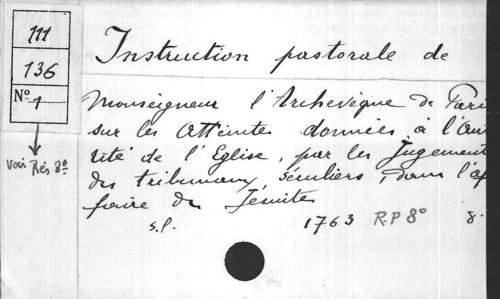 111
136
No 1
Voir Rés 8o
Instruction pastorale de
Monseigneur l'Archevêque de Pari
sur les Atteintes données à l'Au
rité de l'Eglise, par les Jugement
des tribunaux séculiers, dans l'af
faire des Jésuites
s.l. 1763 R.P 8o 8.